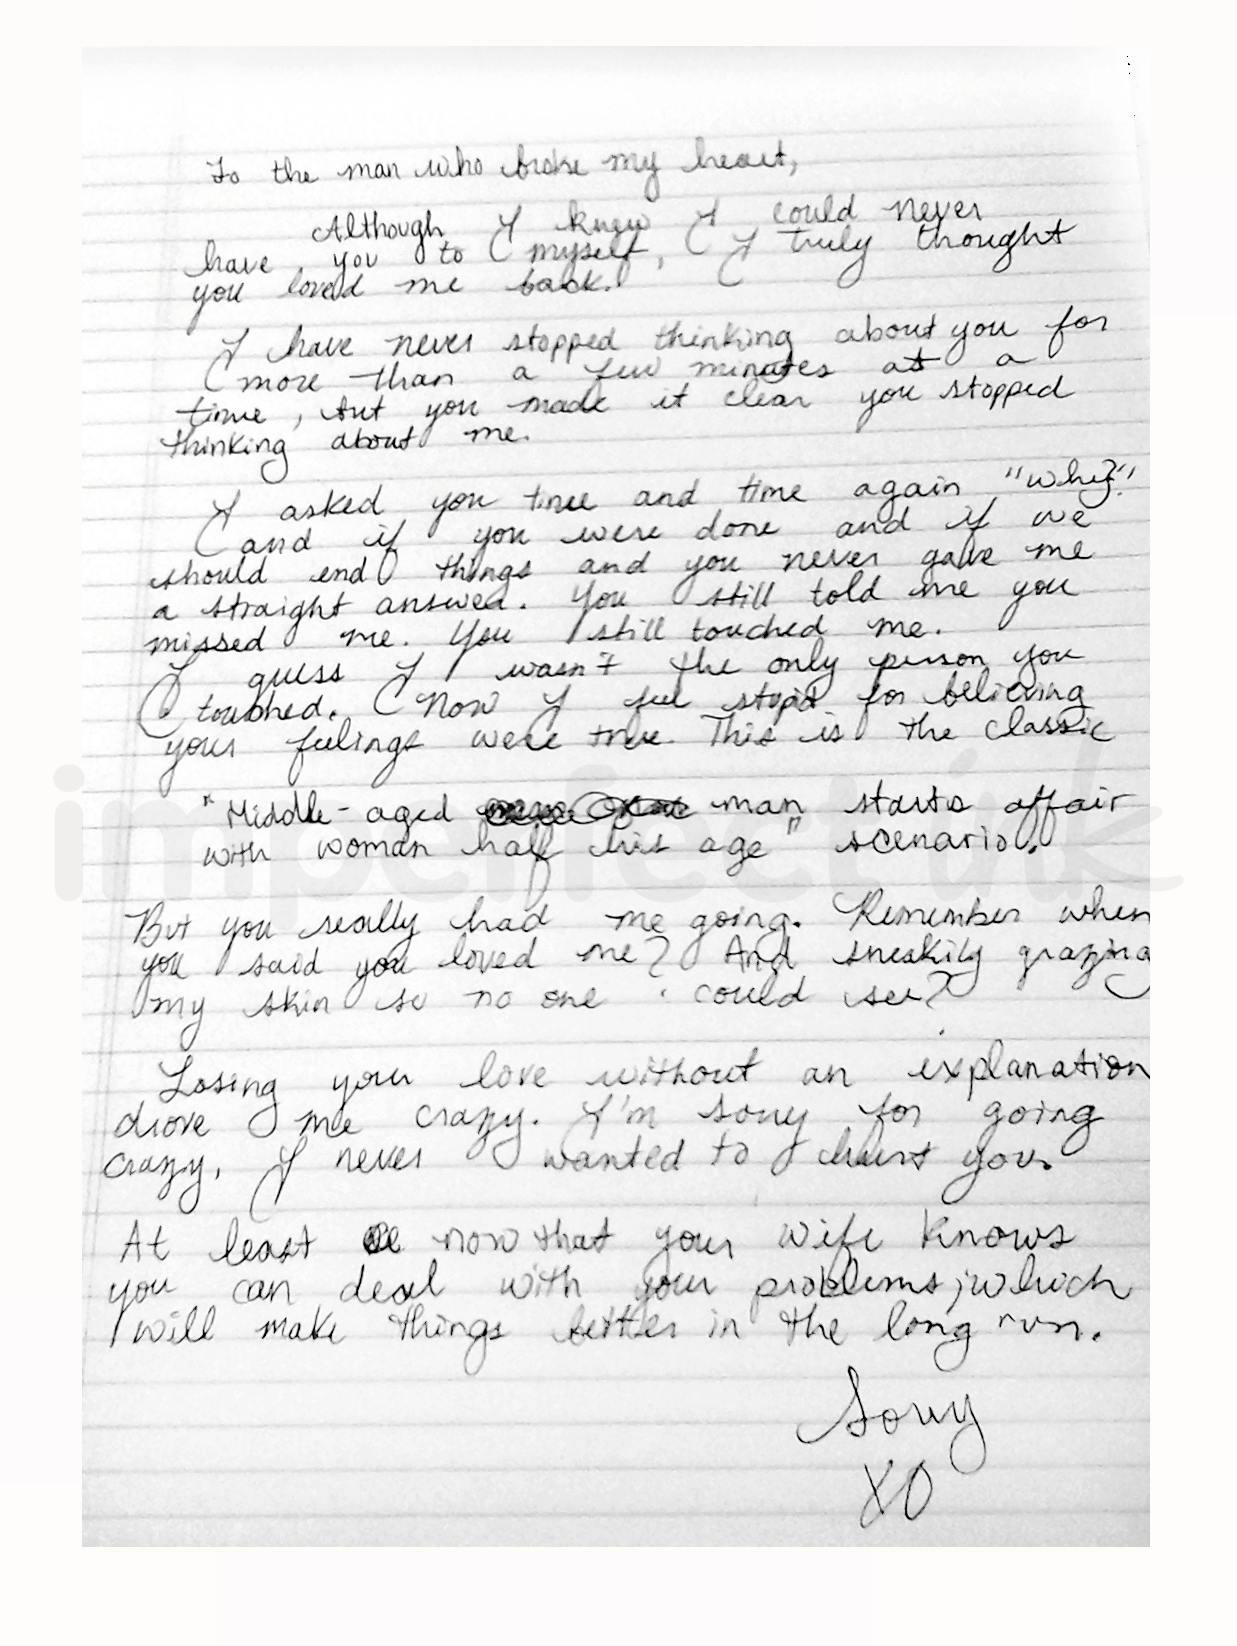 To the man who broke my heart,
Although I knew I could never
have you to myself, I truly thought
you loved me back.
I have never stopped thinking about you for
more than a few minutes at a
time, but you made it clear you stopped
thinking about me.
I asked you time and time again "why?"
and if you were done and if we
should end things and you never gave me
a straight answer. You still told me you
missed me. You still touched me.
I guess I wasn't the only person you
touched. Now I feel stupid for believing
your feelings were true. This is the classic
"Middle-aged man starts affair
with woman half his age" scenario.
imperfect ink
But you really had me going. Remember when
you said you loved me? And sneakily grazing
my skin so no one could see?
Losing your love without an explanation
drove me crazy. I'm sorry for going
crazy, I never wanted to hurt you.
At least now that your wife knows
you can deal with your problems, which
will make things better in the long run.
Sorry
XO